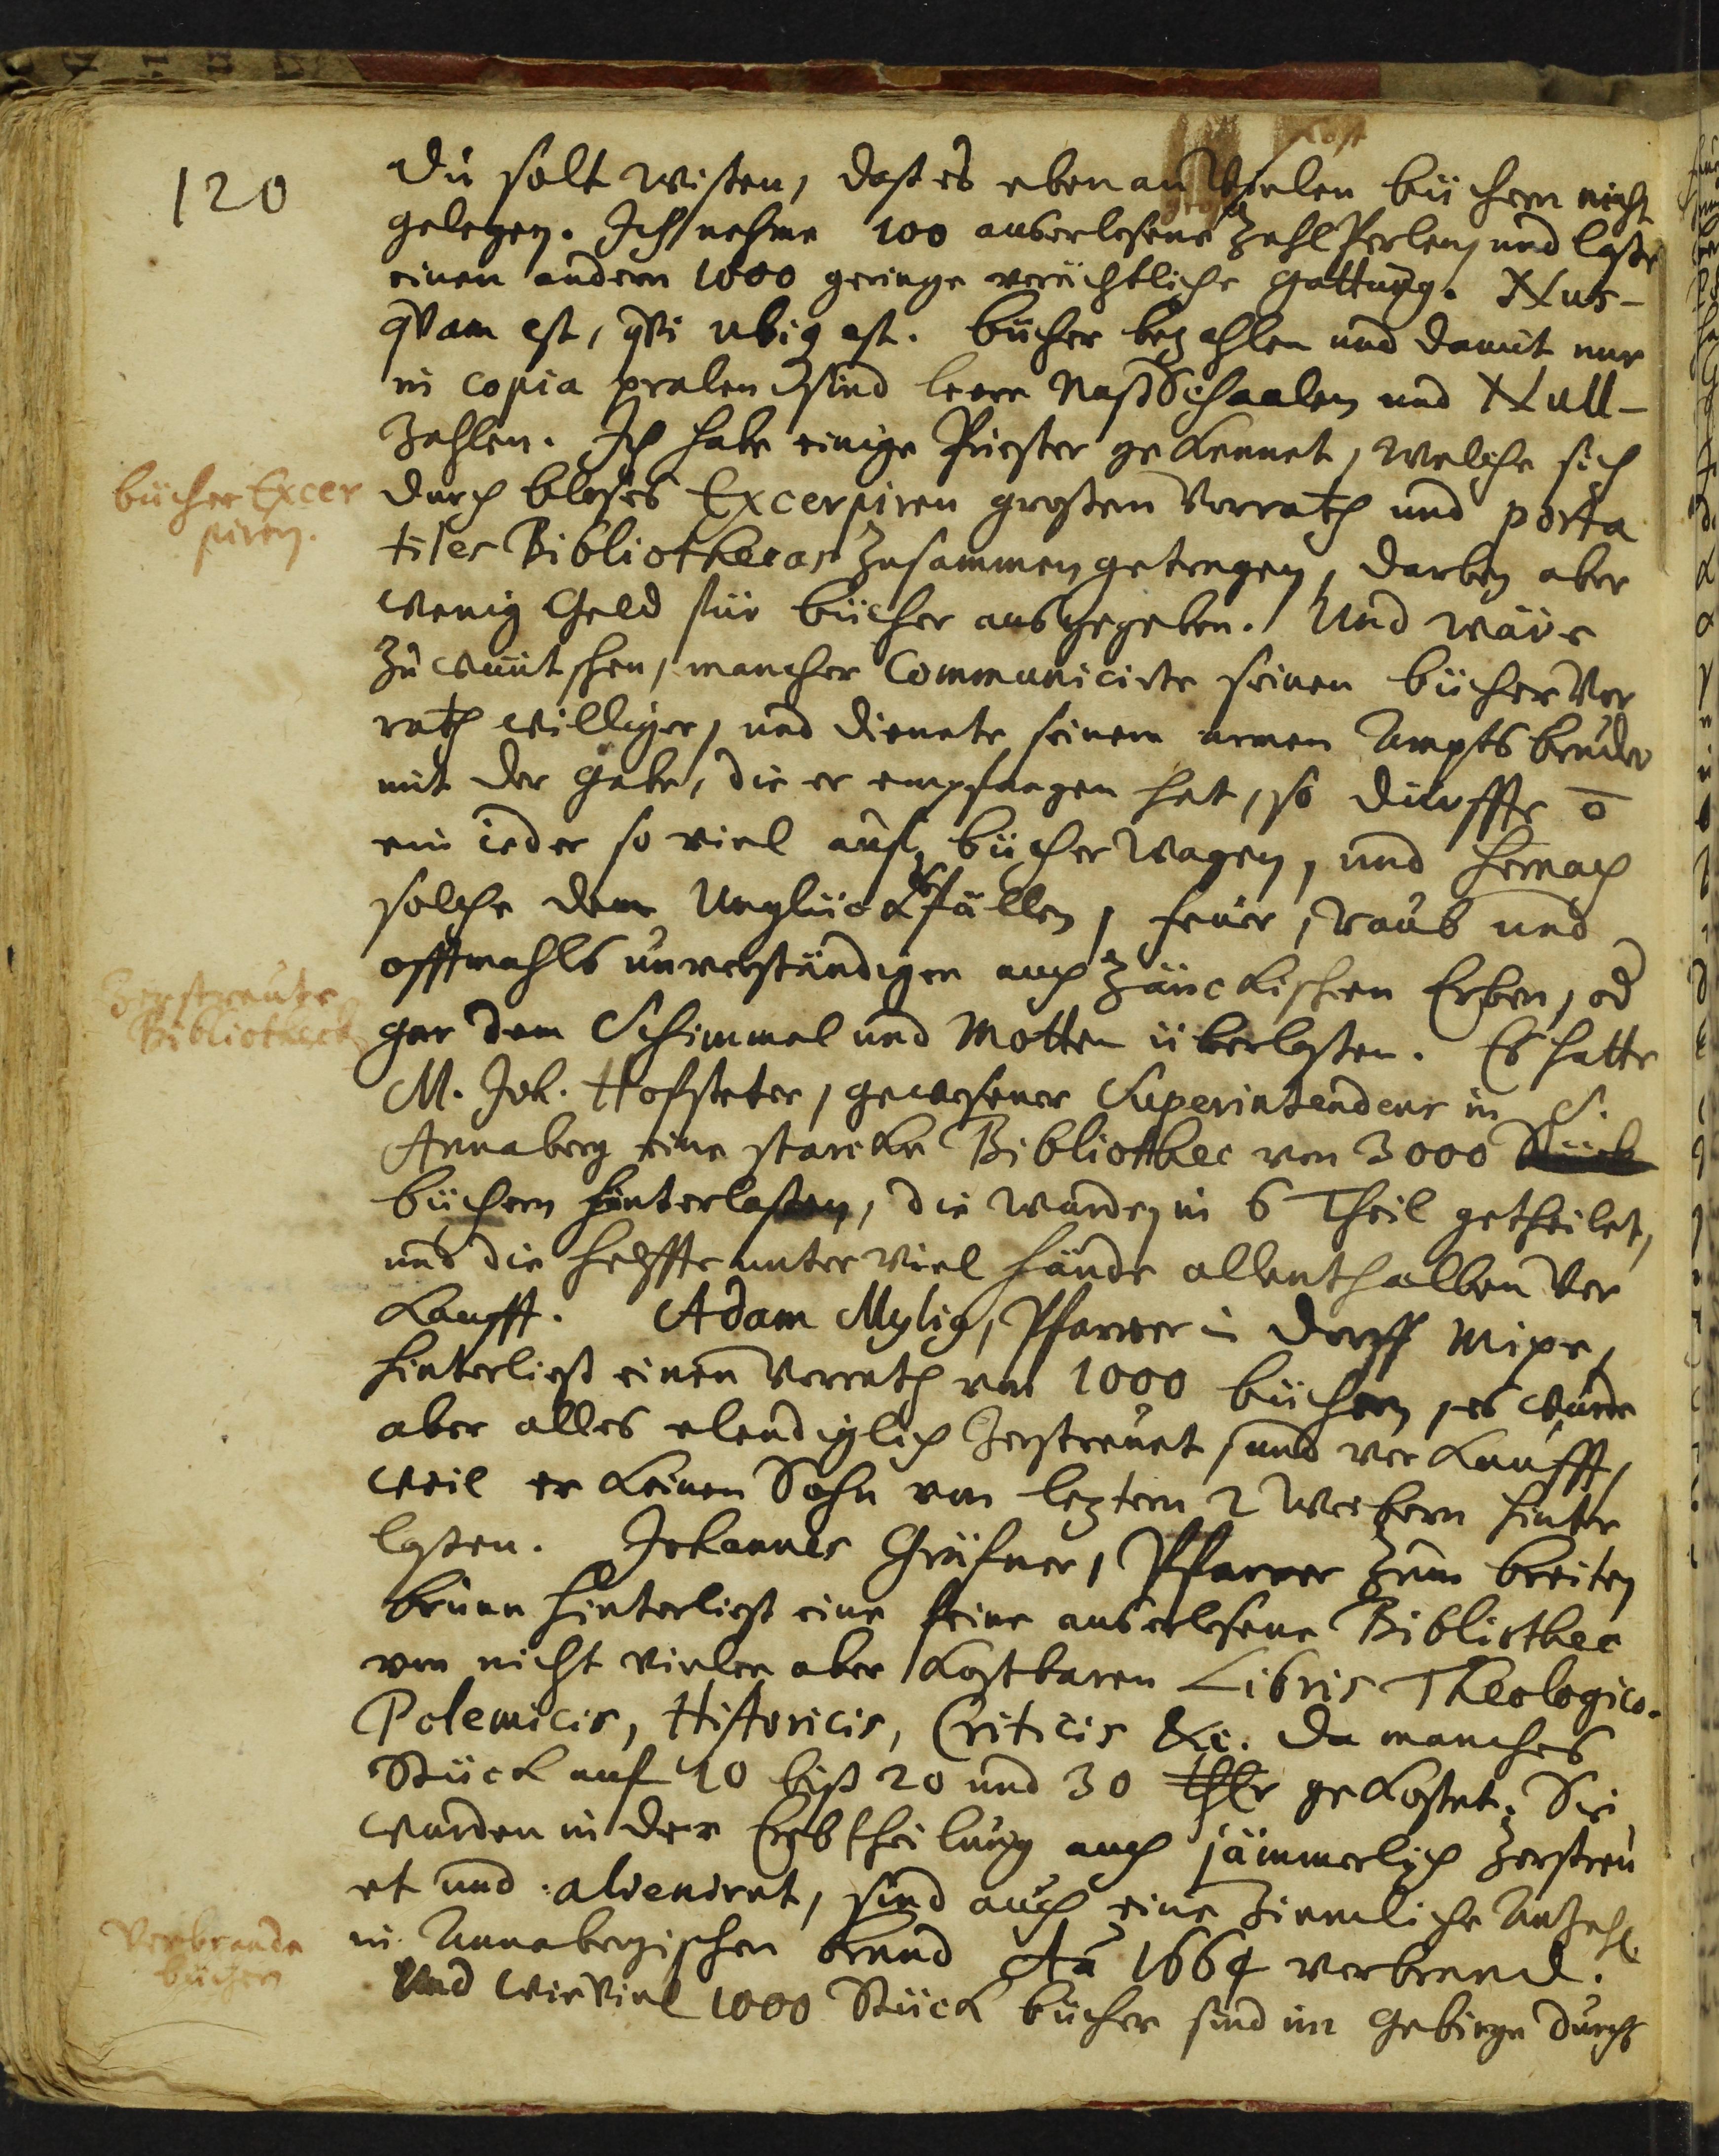 120
Du solt wißen, daß es eben an Vielen büchern nicht
gelegen. Ich nehme 100 auserlesene Zahl Perlen, und laße
einen andern 1000 geringe verächtliche gattung. Nus-
qvam est, qvi ubiq est. bücher bezahlen und damit nur
in copia pralen sind leere NußSchaalen und Null-
Zahlen. Ich habe einige Priester gekennet, welche sich
bücher Excer
piren.
durch bloses Excerpiren großen Vorrath und porta
tiles Bibliothecas zusammen getragen, darbey aber
wenig Geld für bücher ausgegeben. Und wäre
zu wüntschen, mancher Communicirte seinen bücher Vor
rath williger, und dienete seinem armen Ampts bruder
mit der gabe, die er empfangen hat, so dürffte ō
ein ieder so viel auf bücher wagen, und hernach
solche dem Unglücksfällen, feuer, raub und
offtmahls unverständigen auch zänckischen Erben, od
Zerstreute
Bibliotheck
gar dem Schimmel und Motten überlaßen. Es hatte
M. Joh. Hofsteter, gewesener Superintendens in S.
Annaberg eine starcke Bibliothec von 3000 Stück
büchern hinterlaßen, die wurden in 6 Theil getheilet,
und die helffte unter viel hände allenthalben ver
kaufft. Adam Mylig, Pfarrer in dorff
hinterließ einen Vorrath von 1000 büchern, es wurde
aber alles elendiglich zerstreuet und verkaufft,
weil er keinen Sohn von leztern 2 Weibern hinter
laßen. Johannes Gräfner, Pfarrer zum breiten
brunn hinterließ eine feine auserlesene Bibliothec
von nicht vielen aber kostbaren Libris Theologico-
Polemicis, Historicis, Criticis &c. da manches
Stück auf 10 biß 20 und 30 Thlr gekostet. Sie
wurden in der Erbtheilung auch jämmerlich zerstreu
et und alieniret, sind auch eine ziemliche Anzahl
Verbrande
büchern
in Annabergischen brand Aō 1664 verbrand.
Und wie viel 1000 Stück bücher sind im gebirge durch